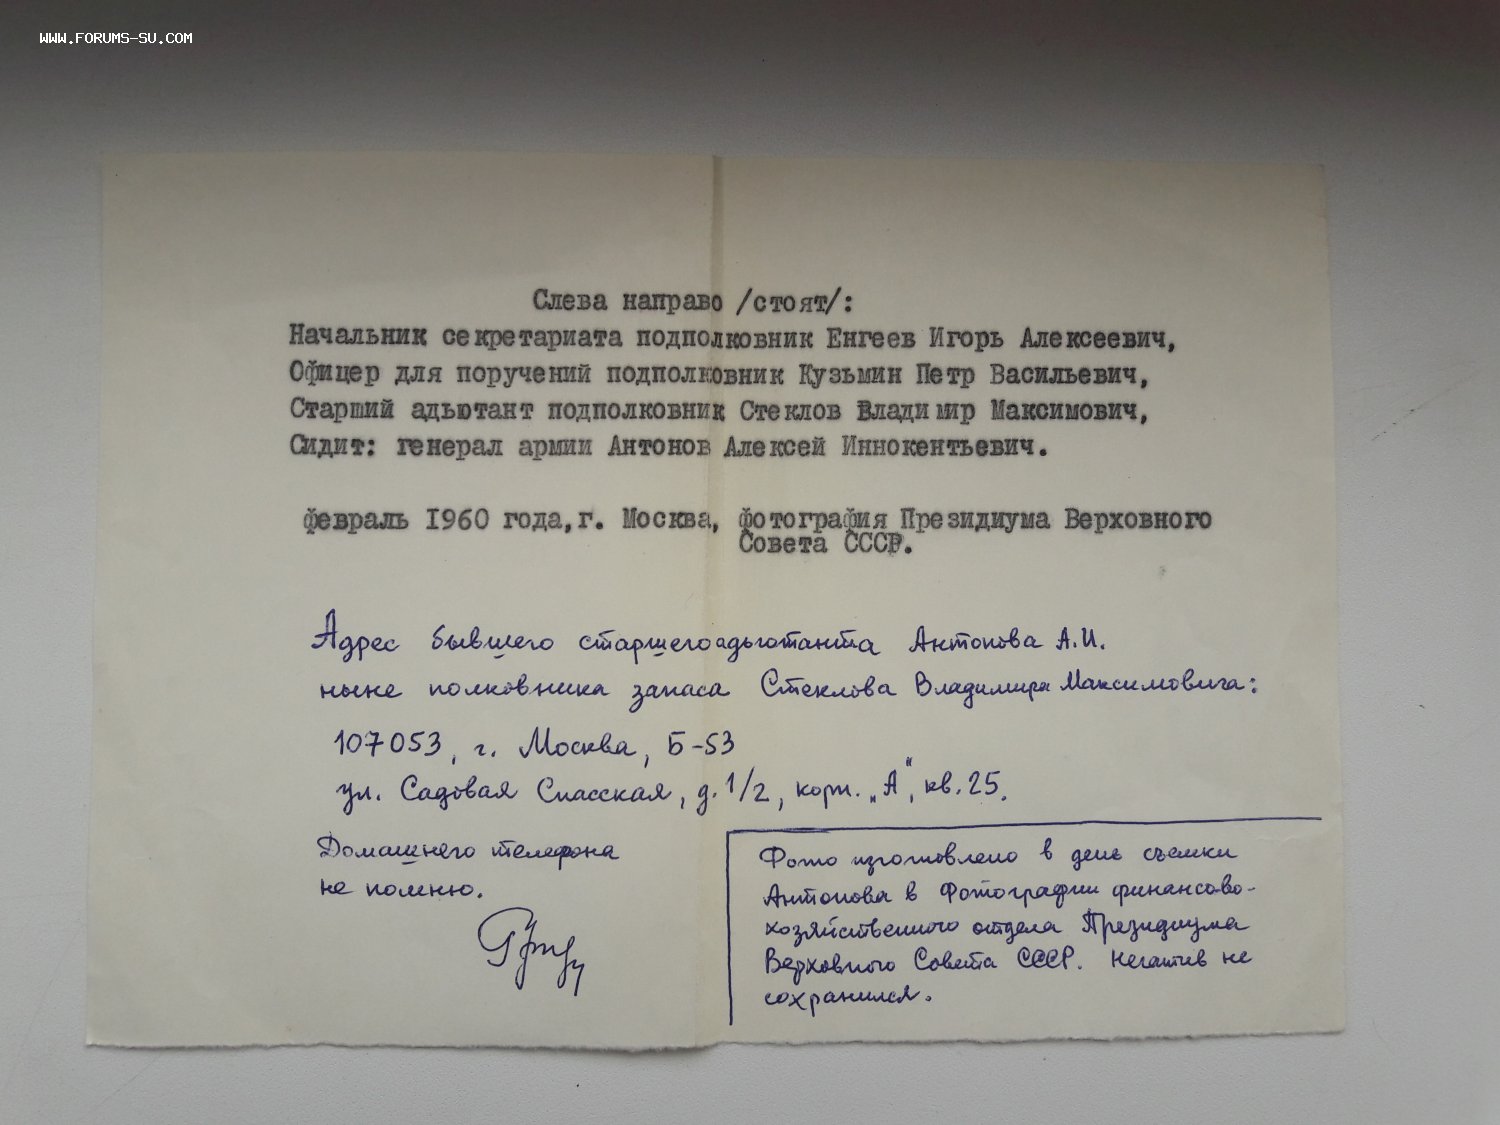 WWW.FORUMS-SU.COM
Слева направо /стоят/:
Начальник секретариата подполковник Енгеев Игорь Алексеевич,
Офицер для поручений подполковник Кузьмин Петр Васильевич,
Старший адьютант подполковник Стеклов Владимир Максимович,
Сидит: генерал армии Антонов Алексей Иннокентьевич.
февраль 1960 года, г. Москва, фотография Президиума Верховного
Совета СССР.
Адрес бывшего старшего адъютанта Антонова А.И.
ныне полковника запаса Стеклова Владимира Максимовича:
107053, г. Москва, Б-53
ул. Садовая Спасская, д. 1/2, корп. „А", кв. 25.
Домашнего телефона
не помню.
Фото изготовлено в день съемки
Антонова в Фотографии финансово-
хозяйственного отдела Президиума
Верховного Совета СССР. Негатив не
сохранился.